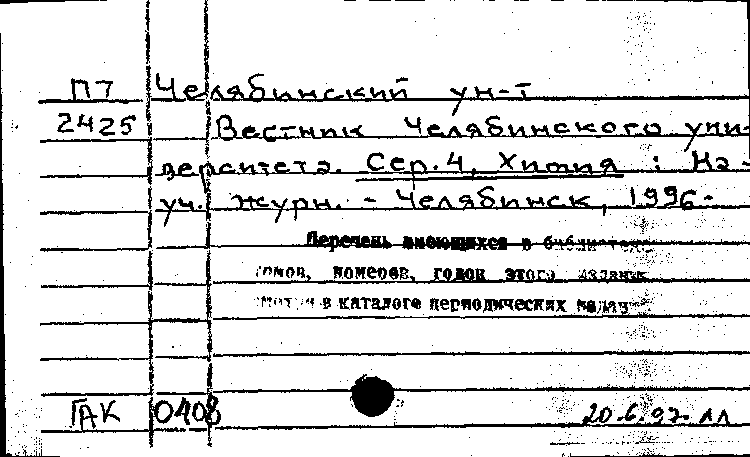 П7 Челябинский ун-т
2425 Вестник Челябинского уни-
верситета. Сер.4, Химия : На-
уч. журн. - Челябинск, 1996-
Перечень имеющихся в библиотеке
томов, номеров, годов этого издания
смотри в каталоге периодических издан
ГАК 0408 20.6.97. лл